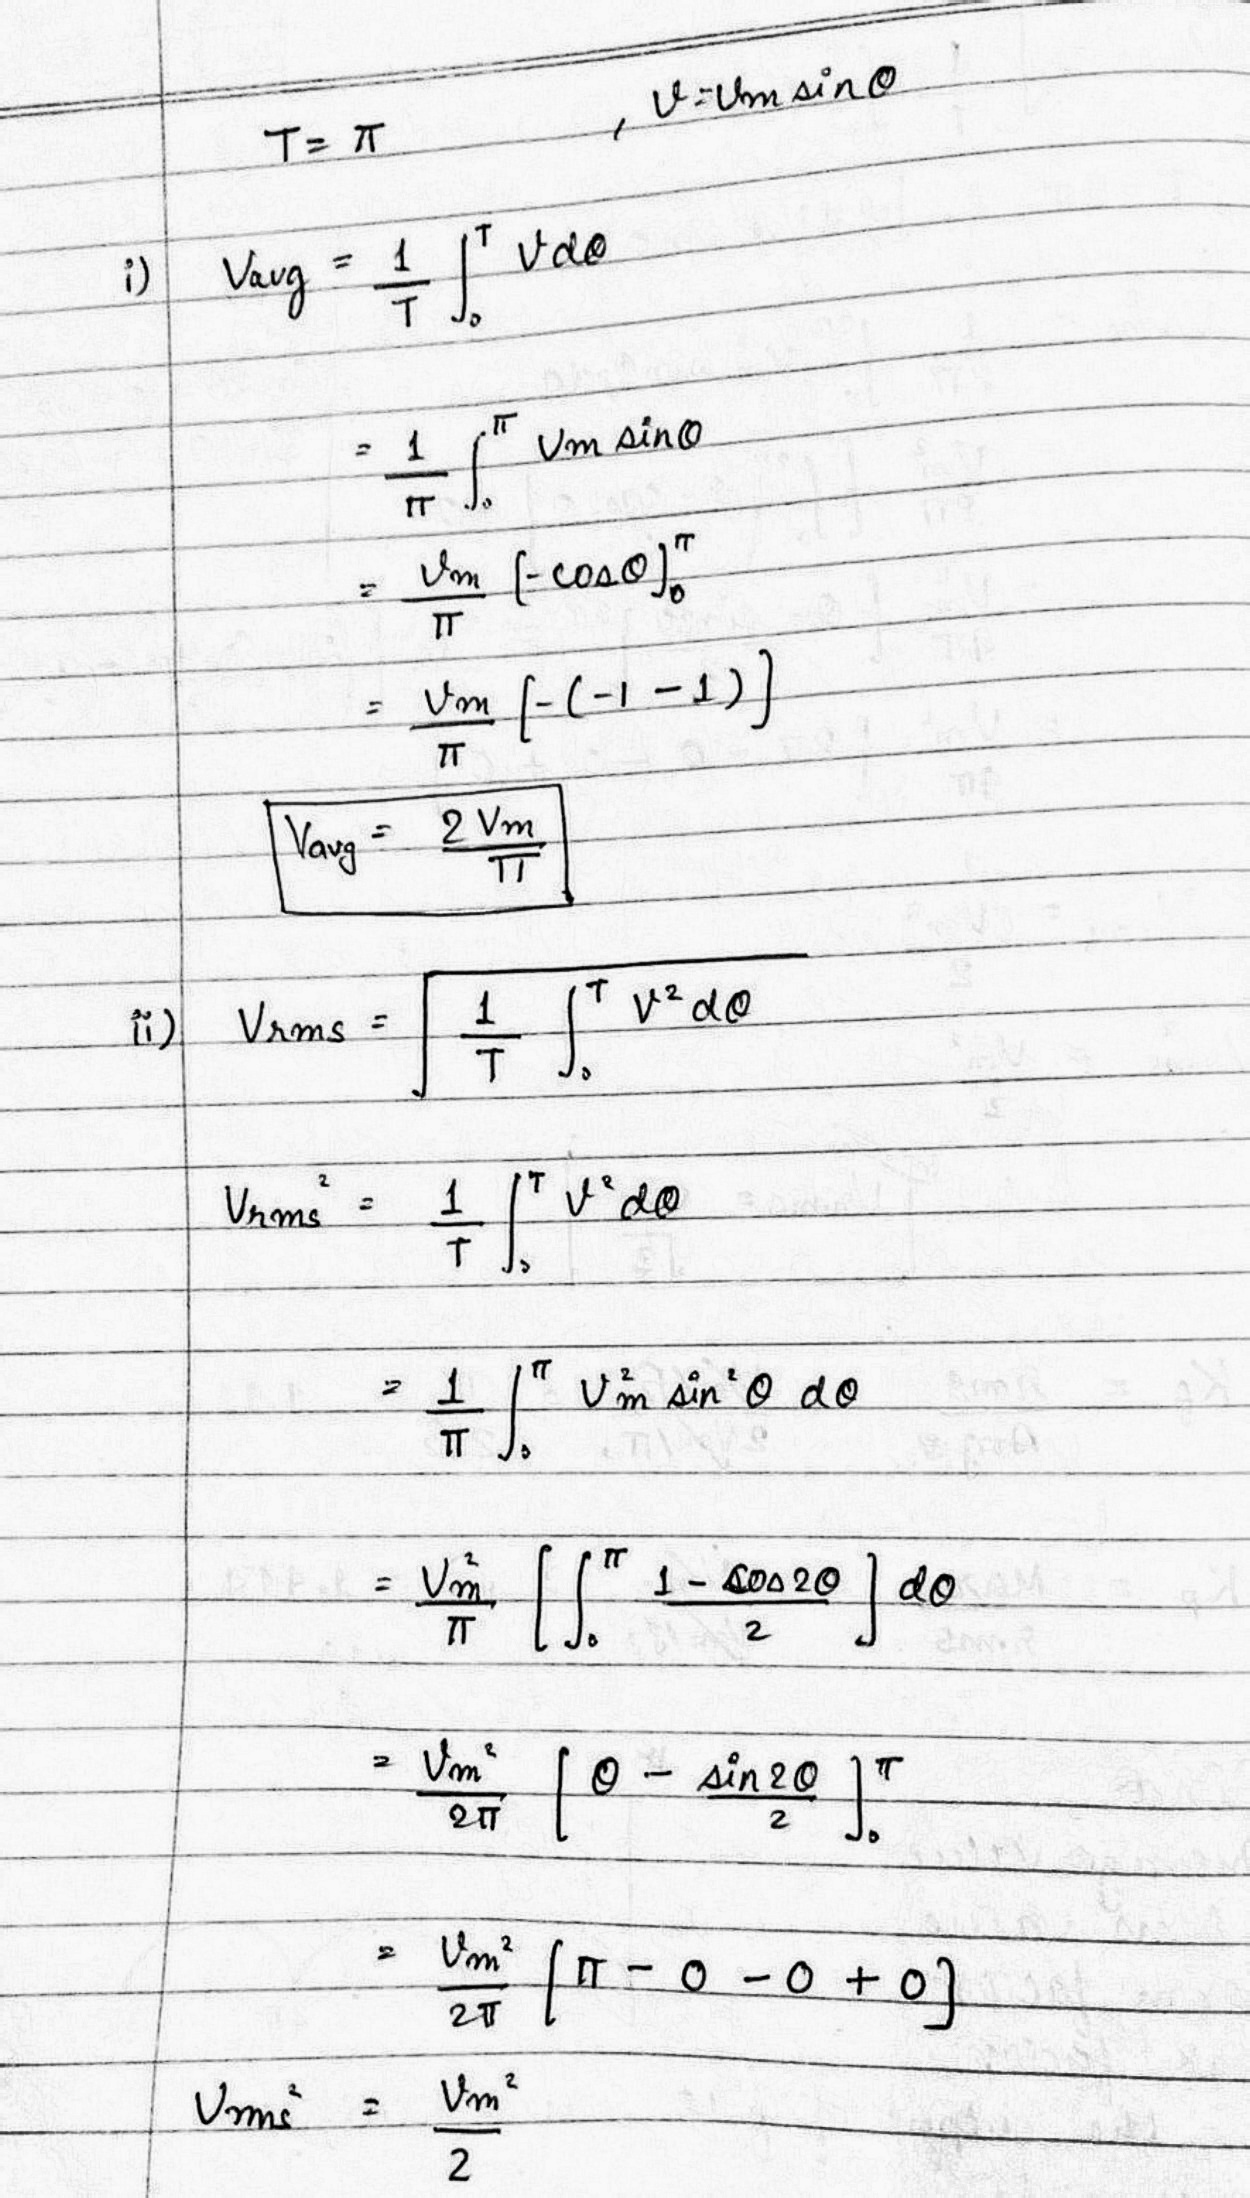 T = π , v = Vm sinθ
i) Vavg = 1/T ∫₀ᵀ V dθ
= 1/π ∫₀^π Vm sinθ
= Vm/π [-cosθ]₀^π
= Vm/π [-(-1 - 1)]
Vavg = 2Vm/π
ii) Vrms = √(1/T ∫₀ᵀ V² dθ
Vrms² = 1/T ∫₀ᵀ V² dθ
= 1/π ∫₀^π Vm² sin²θ dθ
= Vm²/π [∫₀^π (1 - cos2θ)/2] dθ
= Vm²/2π [θ - sin2θ/2]₀^π
= Vm²/2π [π - 0 - 0 + 0]
Vrms² = Vm²/2